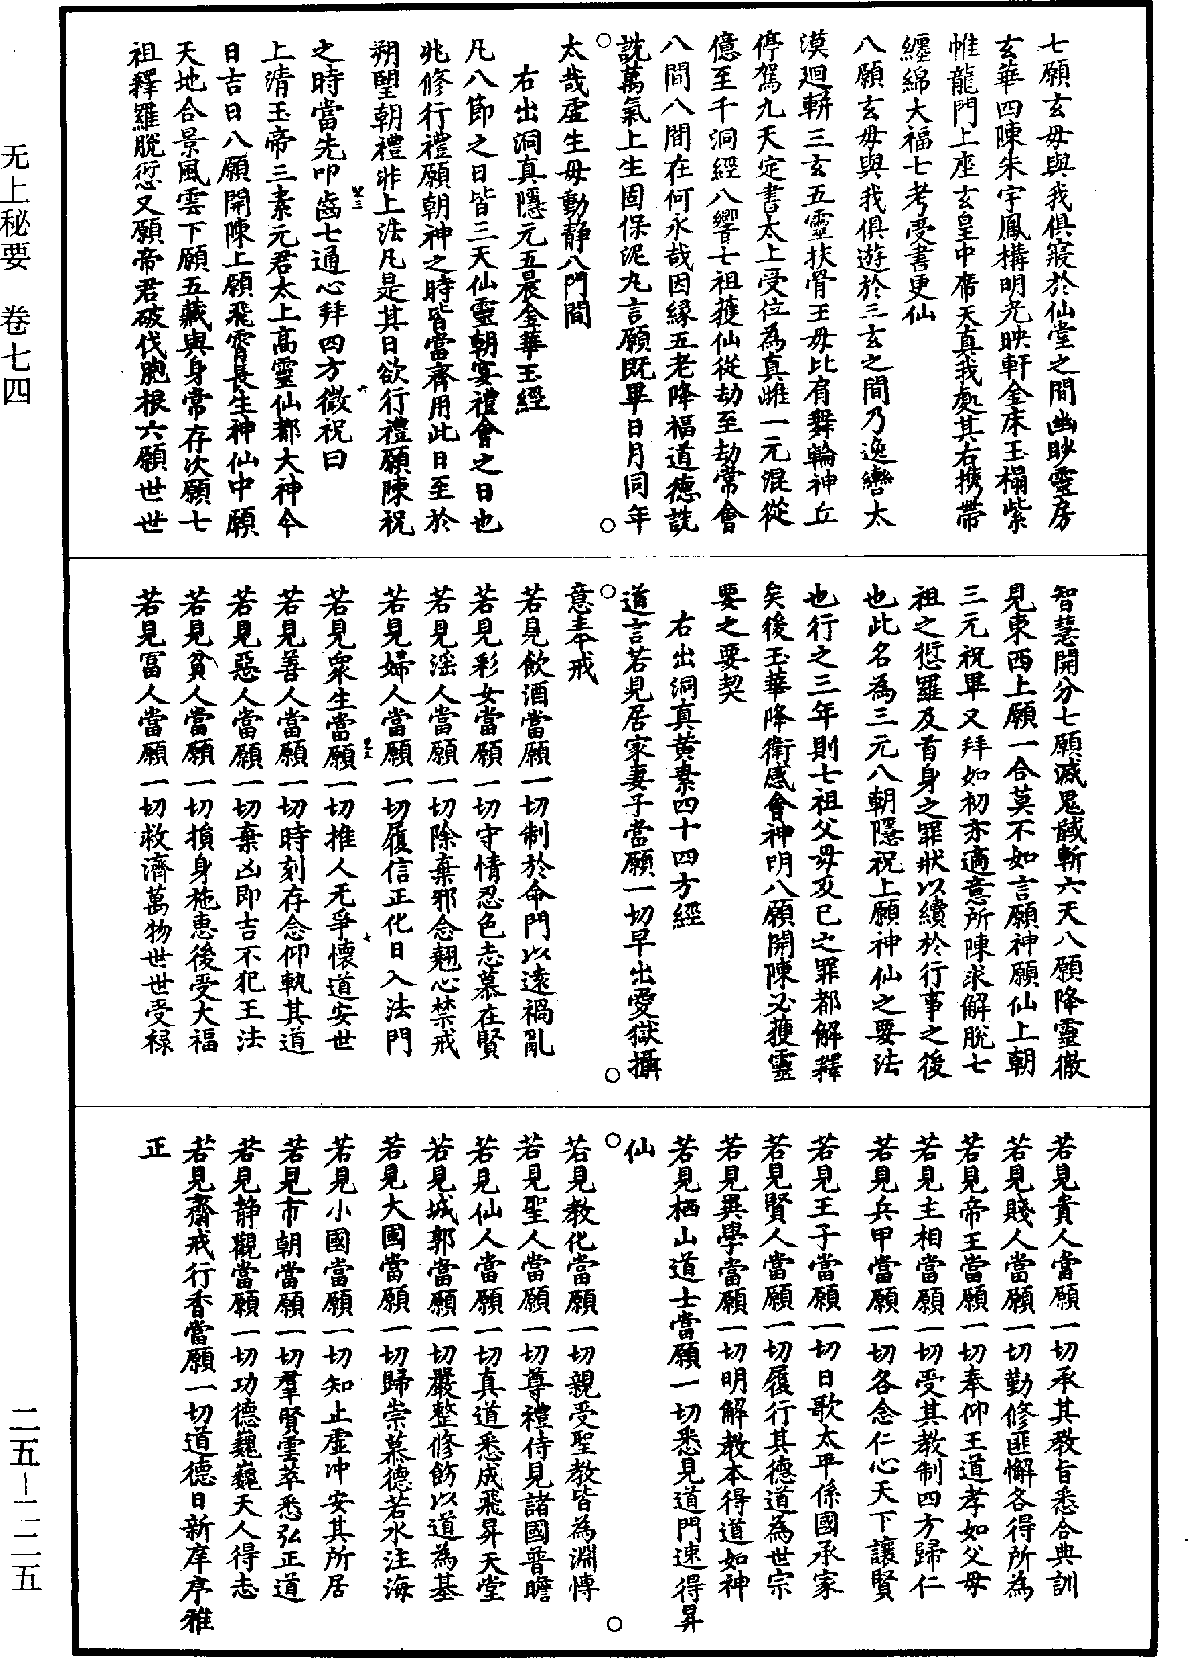 七願玄母與我俱寢於仙堂之間幽眇靈房
玄華四陳朱宇鳳構明光映軒金床玉榻紫
帷龍門上座玄皇中席天真我處其右携帶
纏綿大福七考受書更仙
八願玄母與我俱遊於三玄之間乃逸轡太
漠迴軿三玄五靈扶骨王母比肩舞輪神丘
停駕九天定書太上受位為真雌一元混從
億至千洞經八響七祖獲仙從劫至劫常會
八間八間在何永哉因緣五老降福道德説
説萬氣上生固保泥丸言願既畢日月同年
太哉虛生母動靜八門間
右出洞真隱元五晨金華玉經
凡八節之日皆三天仙靈朝宴禮會之日也
兆修行禮願朝神之時皆當齋用此日至於
朔朢朝禮非上法凡是其日欲行禮願陳祝
之時當先叩齒七通心拜四方微祝曰
上清玉帝三素元君太上高靈仙都大神今
日吉日八願開陳上願飛霄長生神仙中願
天地合景風雲下願五藏與身常存次願七
祖釋羅脫愆又願帝君破伐胞根六願世世
智慧開分七願滅鬼馘斬六天八願降靈徹
見東西上願一合莫不如言願神願仙上朝
三元祝畢又拜如初亦適意所陳求解脫七
祖之愆羅及首身之罪狀以續於行事之後
也此名為三元八朝隱祝上願神仙之要法
也行之三年則七祖父母及己之罪都解釋
矣後玉華降衛感會神明八願開陳必獲靈
要之要契
右出洞真黃素四十四方經
道言若見居家妻子當願一切早出愛獄攝
意奉戒
若見飲酒當願一切制於命門以遠禍亂
若見彩女當願一切守情忍色志慕在賢
若見淫人當願一切除棄邪念翹心禁戒
若見婦人當願一切履信正化日入法門
若見衆生當願一切推人无爭懷道安世
若見善人當願一切時刻存念仰執其道
若見惡人當願一切棄凶即吉不犯王法
若見貧人當願一切損身施惠後受大福
若見冨人當願一切救濟萬物世世受祿
若見貴人當願一切承其教旨悉合典訓
若見賤人當願一切勤修匪懈各得所為
若見帝王當願一切奉仰王道孝如父母
若見主相當願一切受其教制四方歸仁
若見兵甲當願一切各念仁心天下讓賢
若見王子當願一切日歌太平係國承家
若見賢人當願一切履行其德道為世宗
若見異學當願一切明解教本得道如神
若見栖山道士當願一切悉見道門速得昇
仙
若見教化當願一切親受聖教皆為淵博
若見聖人當願一切尊禮侍見諸國普瞻
若見仙人當願一切真道悉成飛昇天堂
若見城郭當願一切嚴整修飾以道為基
若見大國當願一切歸崇慕德若水注海
若見小國當願一切知止虛冲安其所居
若見市朝當願一切羣賢雲萃悉弘正道
若見靜觀當願一切功德巍巍天人得志
若見齋戒行香當願一切道德日新庠序雅
正
无上秘要　卷七四
二五－二二五